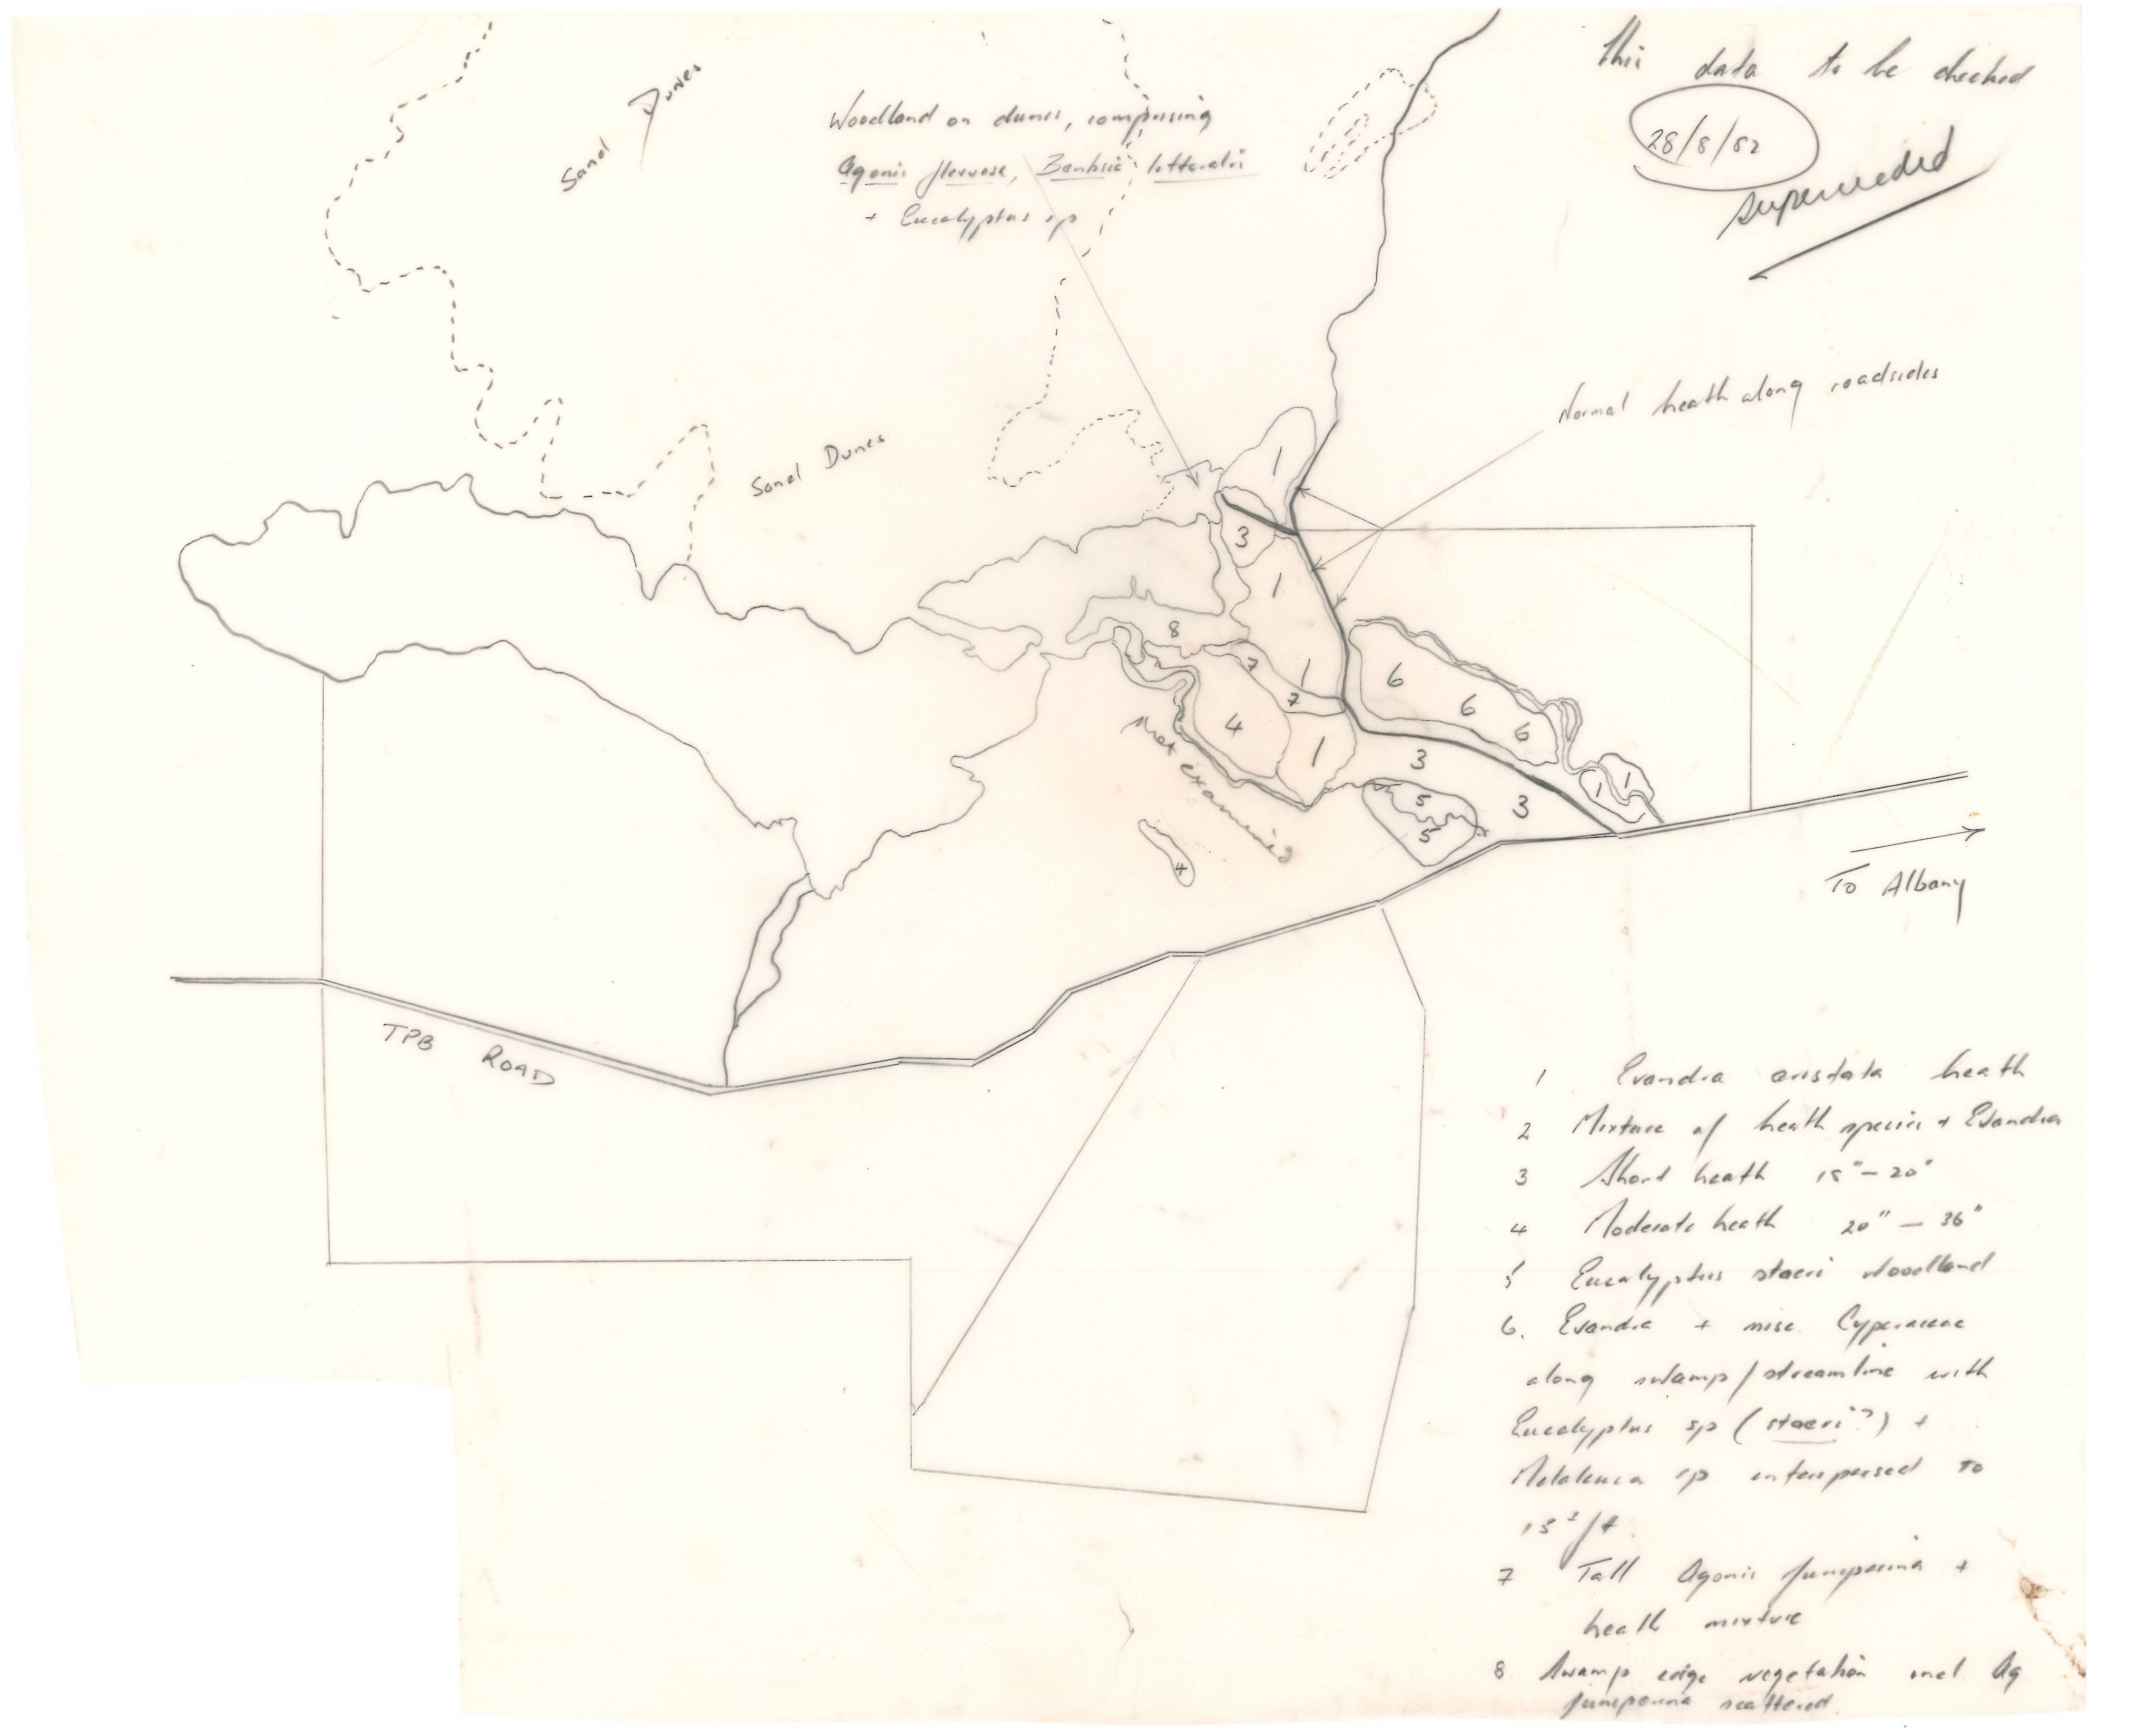 this data to be checked
28/8/82
superceded
Sand Dunes
Woodland on dunes, comprising
Agonis flexuosa, Banksia littoralis
+ Eucalyptus sp
Normal heath along roadsides
Sand Dunes
1
3
1
8
7
1
7
6
6
6
4
1
3
1
1
5
3
5
4
Not examined
To Albany
TPB ROAD
1 Evandra aristata heath
2 Mixture of heath species + Evandra
3 Short heath 18" – 20"
4 Moderate heath 20" – 36"
5 Eucalyptus staeri Woodland
6. Evandra + misc. Cyperaceae
along swamp/streamline with
Eucalyptus sp (staeri?) +
Melaleuca sp interspersed to
7 Tall Agonis juniperina +
heath mixture
8 Swamp edge vegetation incl Ag
juniperina scattered.